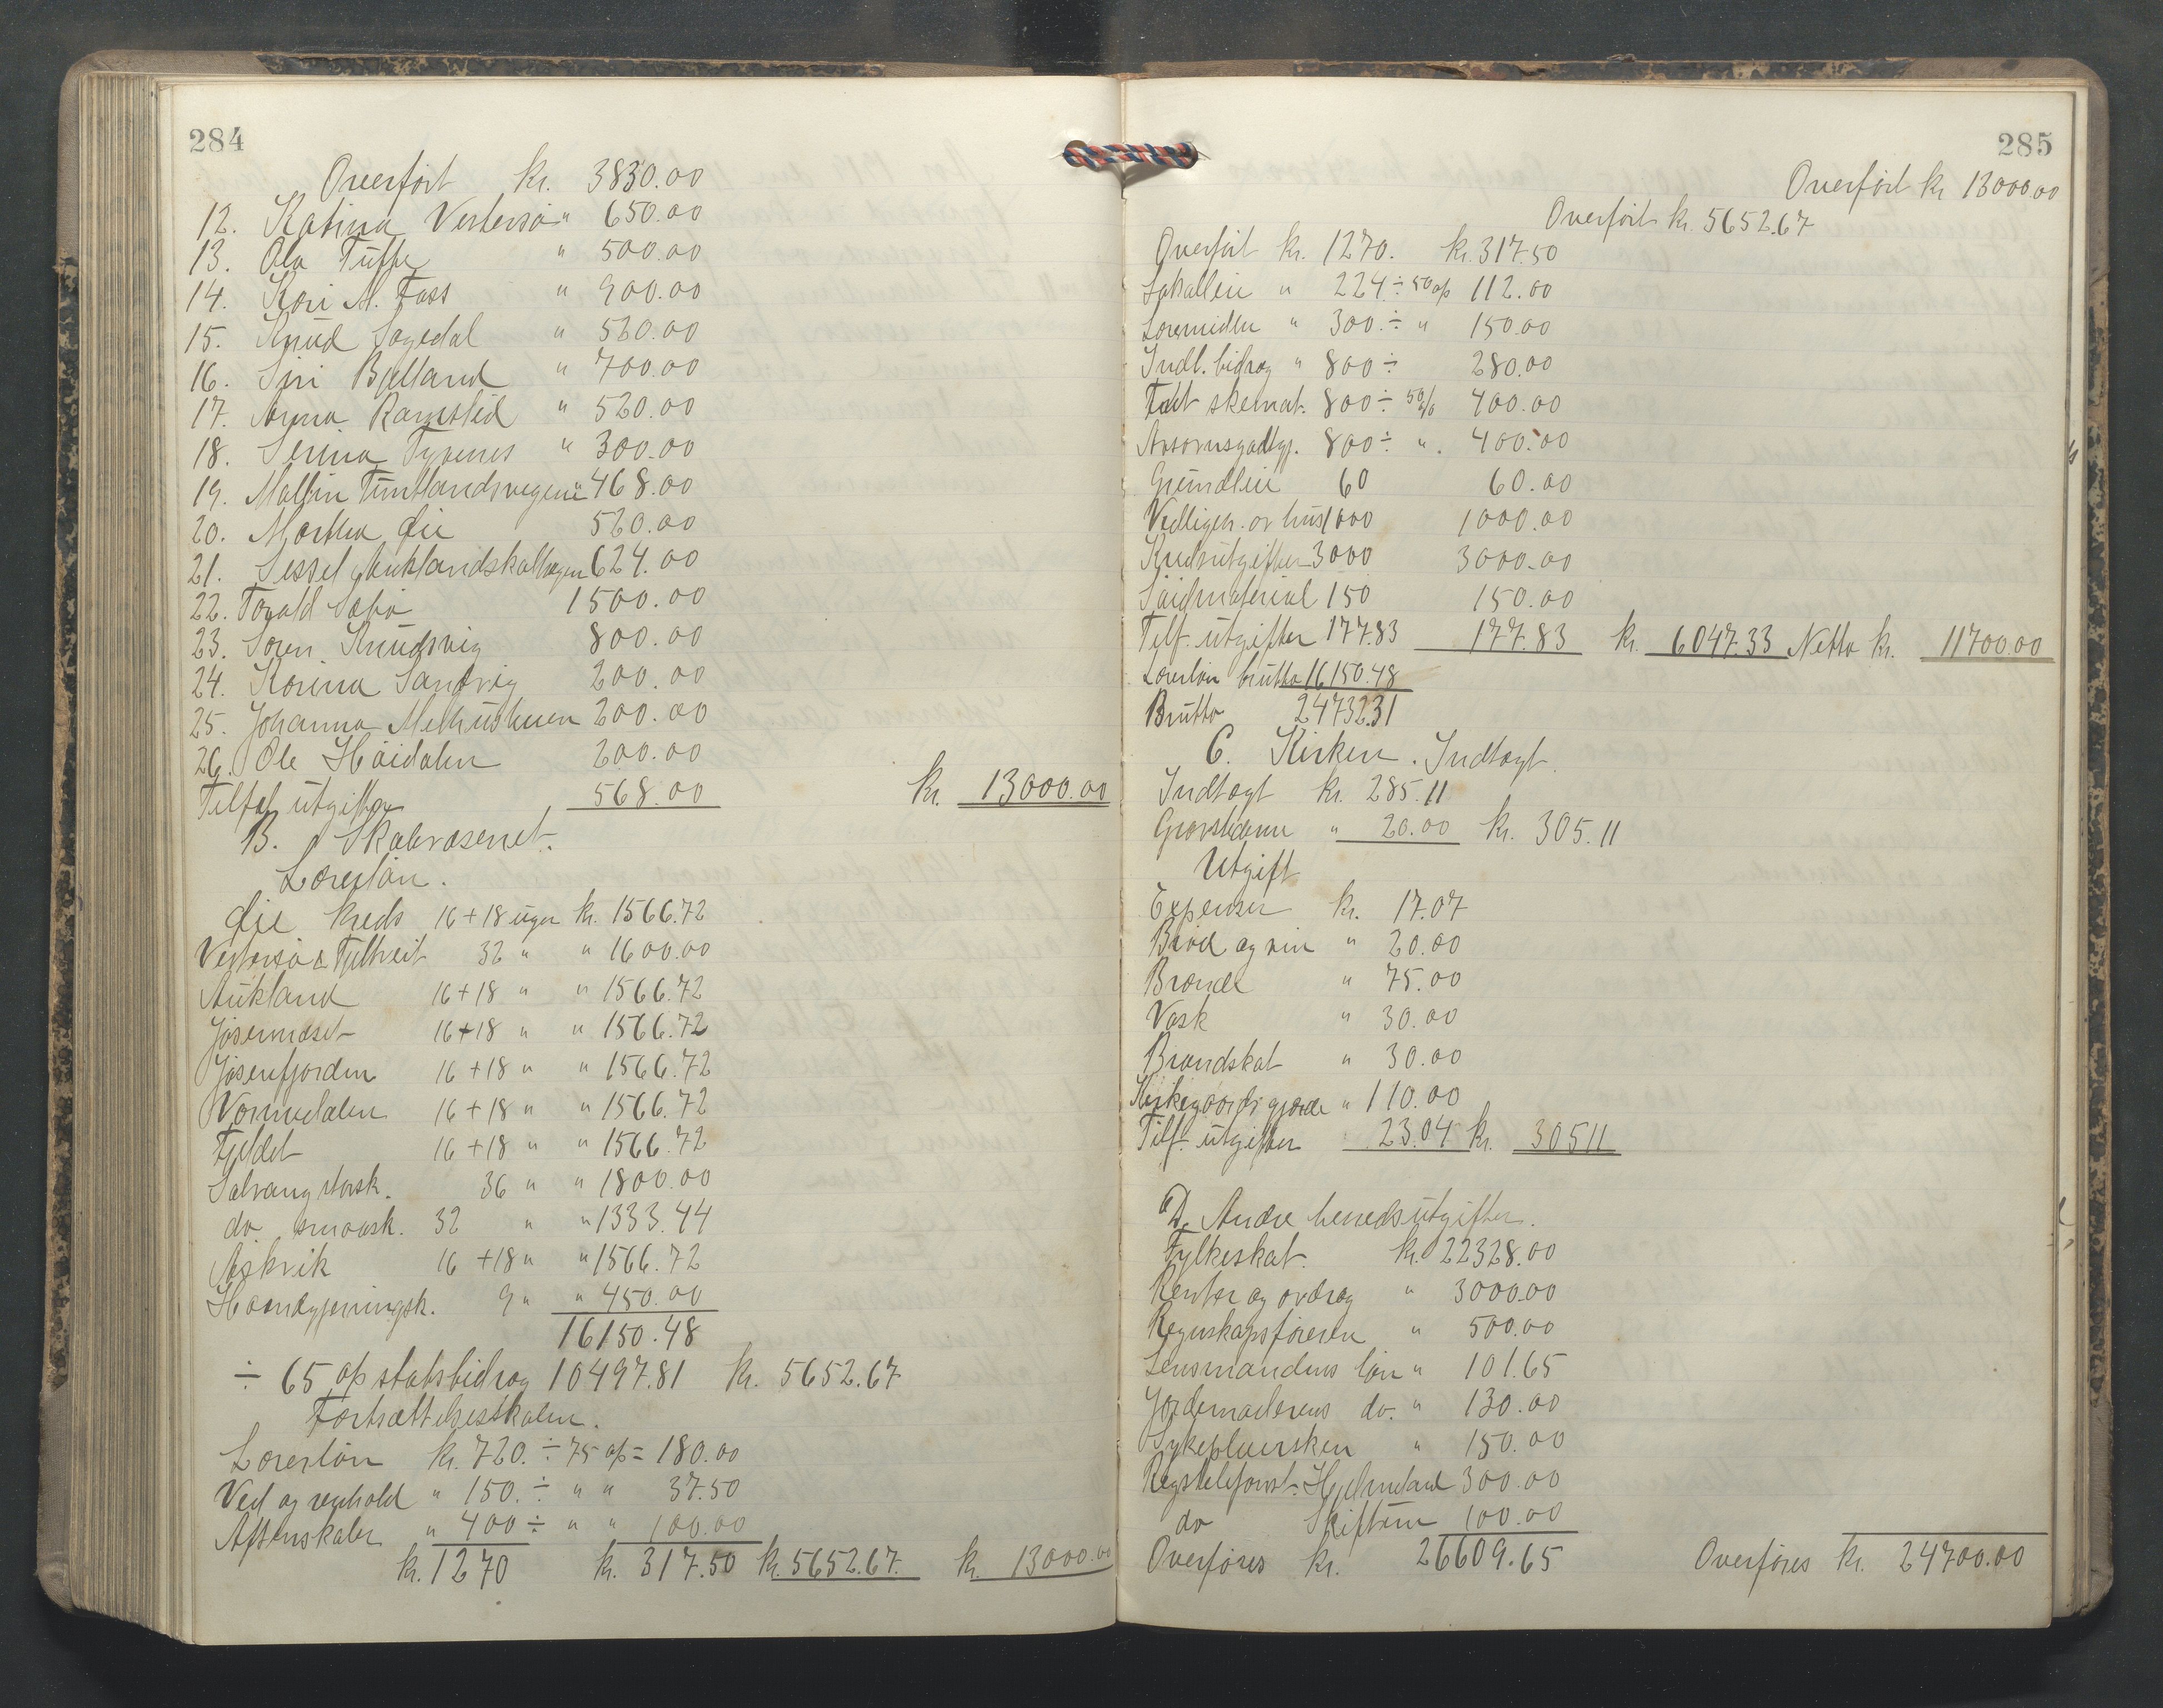 284
Overført kr. 3830.00
12. Katrina Vestersø " 650.00
13. Ola Tuffe " 500.00
14. Kari A. Foss " 900.00
15. Knud Sagedal " 520.00
16. Siri Bjelland " 700.00
17. Anna Ramslid " 520.00
18. Serina Tysenes " 300.00
19. Mallin Tuntlandsvegene " 468.00
20. Martha Øie 520.00
21. Sessel Auklandskalhagen 624.00
22. Torvald Sæbø 1500.00
23. Søren Knudsvig 800.00
24. Korina Sandvig 200.00
25. Johanna Mehushuen 200.00
26. Ole Høidalen 200.00
Tilfæl utgifter 568.00 kr. 13000.00
B. Skolevæsenet.
Lærerløn.
Øie kreds 16+18 uger kr. 1566.72
Vestersø & Tjeltveit 32 " " 1600.00
Aukland 16+18 " " 1566.72
Jøsenneset 16+18 " " 1566.72
Jøsenfjorden 16+18 " " 1566.72
Vormedalen 16+18 " " 1566.72
Fjeldet 16+18 " " 1566.72
Salvaag storsk. 36 " " 1800.00
do smaask. 32 " " 1333.44
Askvik 16+18 " " 1566.72
Haandgjerningsk. 9 " " 450.00
16150.48
÷ 65 op statsbidrag 10497.81 kr. 5652.67
Fortsættelsesskolen.
Lærerløn kr. 720. ÷ 75 op = 180.00
Ved og renhold " 150. ÷ " " 37.50
Aftenskoler " 400 ÷ " " 100.00
kr. 1270 kr. 317.50 kr. 5652.67. kr. 13000.00
285
Overført kr 13000.00
Overført kr. 5652.67
Overført kr. 1270. kr. 317.50
Lokalleie " 224 ÷ 50 op 112.00
Læremidler " 300. ÷ " 150.00
Indl. bidrag " 800 ÷ 280.00
Fast skemat. 800 ÷ 50% 400.00
Ansvarsgodtgj. 800 ÷ ". 400.00
Grundleie 60 60.00
Vedligeh. av hus 1000 1000.00
Kredsutgifter 3000 3000.00
Løidmaterial 150 150.00
Tilf. utgifter 177.83 177.83 kr. 6047.33 Netto kr. 11700.00
Lærerløn brutto 16150.48
Brutto 24732.31
C. Kirken. Indtægt.
Indtægt kr. 285.11
Gravstederne " 20.00 kr. 305.11
Utgift
Expenser kr. 17.07
Brød og vin " 20.00
Brænde " 75.00
Vask " 30.00
Brandskat " 30.00
Kirkegaards gjærde " 110.00
Tilf. utgifter 23.04 kr. 305.11
D. Andre herredsutgifter.
Fylkeskat. kr. 22328.00
Renter og avdrag " 3000.00
Regnskapsføreren " 500.00
Lensmandens løn " 101.65
Jordemoderens do. " 130.00
Sykepleiersken " 150.00
Rigstelefonst. Hjelmeland 300.00
do Skiftun 100.00
Overføres kr. 26609.65 Overføres kr. 24700.00